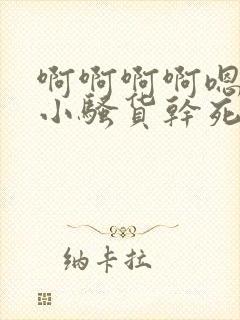 啊啊啊啊嗯
小骚货幹死
纳卡拉